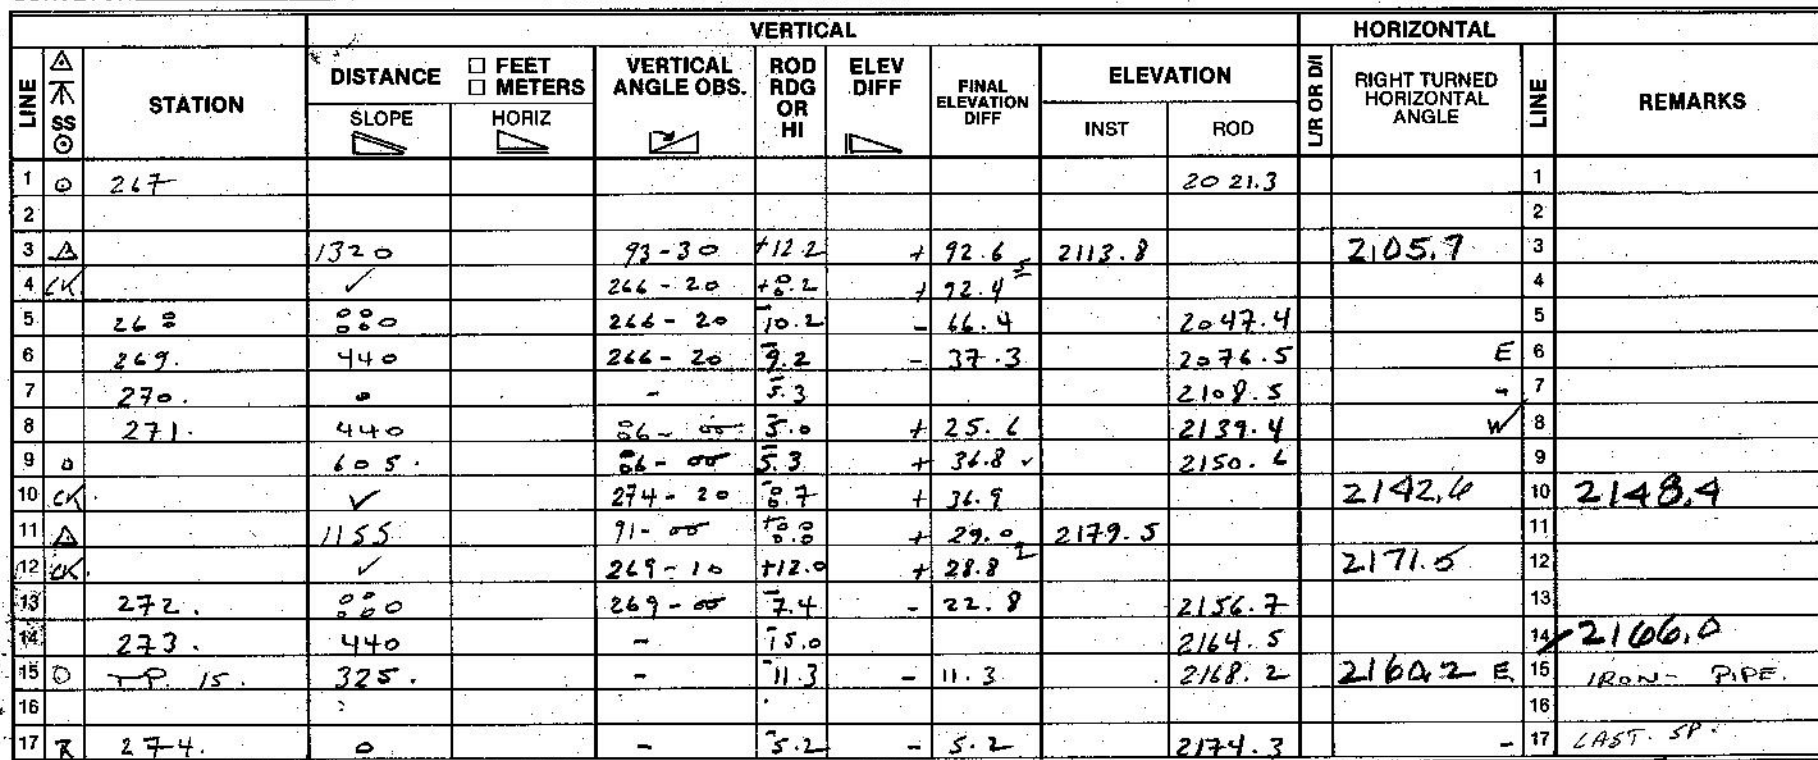 VERTICAL HORIZONTAL
LINE SS STATION DISTANCE □ FEET □ METERS VERTICAL ANGLE OBS. ROD RDG OR HI ELEV DIFF FINAL ELEVATION DIFF ELEVATION L/R OR D/I RIGHT TURNED HORIZONTAL ANGLE LINE REMARKS
SLOPE HORIZ INST ROD
1 267 2021.3 1
2 2
3 1320 93-30 +12.2 + 92.6 2113.8 2105.7 3
4 CK ✓ 266-20 + 92.4 5 4
5 266-20 -10.2 - 66.4 2047.4 5
6 269. 440 266-20 -9.2 - 37.3 2076.5 E 6
7 270. 0 - -5.3 2108.5 - 7
8 271. 440 -5.0 + 25.6 2139.4 W ✓ 8
9 605. -5.3 + 36.8 ✓ 2150.6 9
10 CK. ✓ 274-20 + 36.9 2142.6 10 2148.4
11 1155 91-00 + 29.0 2179.5 11
12 CK. ✓ 269-10 +12.0 + 28.8 2 2171.5 12
13 272. 269-00 -7.4 - 22.8 2156.7 13
14 273. 440 - -15.0 2164.5 14 2166.0
15 T.P. 15. 325. - -11.3 - 11.3 2168.2 2160.2 E 15 IRON- PIPE.
16 16
17 274. 0 - -5.2 - 5.2 2174.3 - 17 LAST. SP.